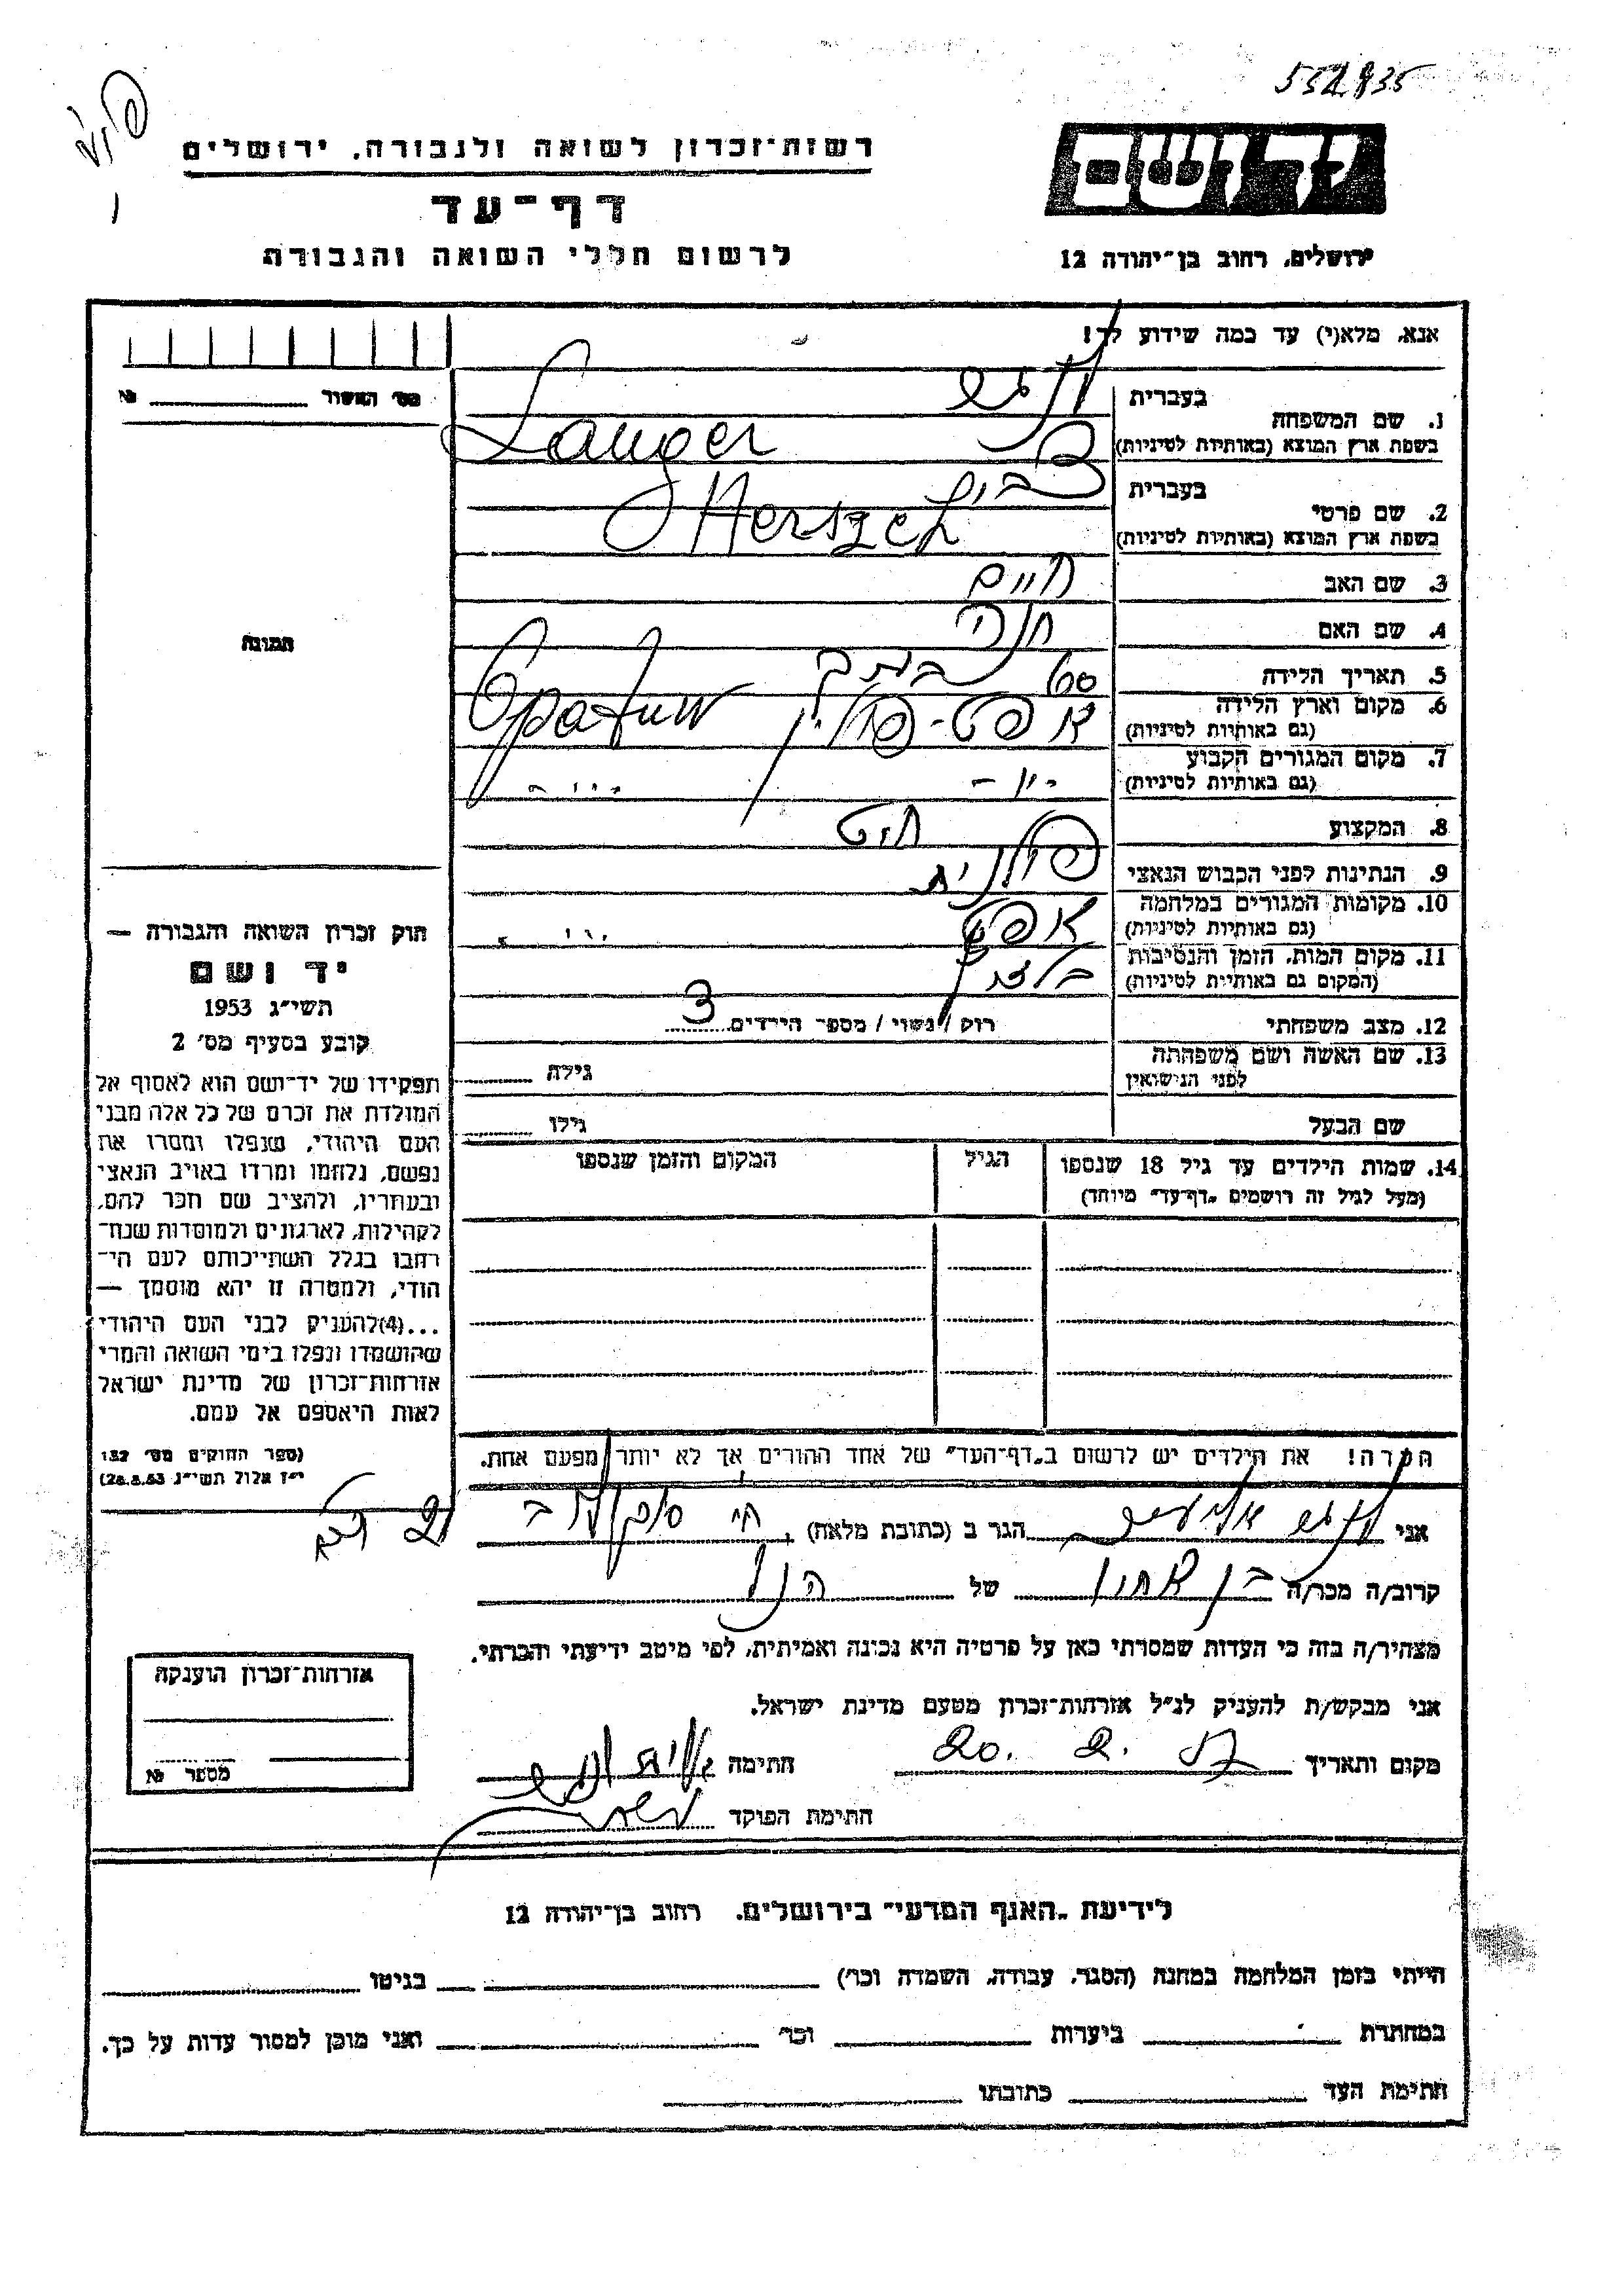 552835
רשות־זכרון לשואה ולגבורה, ירושלים
דף־עד
לרשום חללי השואה והגבורה
יד ושם
ירושלים, רחוב בן־יהודה 12
אנא, מלא(י) עד כמה שידוע לך!
מס׳ האשור №
1. שם המשפחה בעברית לנגר
בשפת ארץ המוצא (באותיות לטיניות) Langer
2. שם פרטי בעברית
בשפת ארץ המוצא (באותיות לטיניות) Herszek
3. שם האב חיים
4. שם האם חנה
5. תאריך הלידה 60 בערך
6. מקום וארץ הלידה
(גם באותיות לטיניות) אפט - פולין Opatuw
7. מקום המגורים הקבוע
(גם באותיות לטיניות) - " - - " -
8. המקצוע חיט
9. הנתינות לפני הכבוש הנאצי פולנית
10. מקומות המגורים במלחמה
(גם באותיות לטיניות) אפט - " -
11. מקום המות, הזמן והנסיבות
(המקום גם באותיות לטיניות)
12. מצב משפחתי רוק / נשוי / מספר הילדים 3
13. שם האשה ושם משפחתה
לפני הנישואין גילה
שם הבעל גילו
14. שמות הילדים עד גיל 18 שנספו הגיל המקום והזמן שנספו
(מעל לגיל זה רושמים "דף־עד" מיוחד)
תמונה
חוק זכרון השואה והגבורה —
יד ושם
תשי"ג 1953
קובע בסעיף מס׳ 2
תפקידו של יד־ושם הוא לאסוף אל
המולדת את זכרם של כל אלה מבני
העם היהודי, שנפלו ומסרו את
נפשם, נלחמו ומרדו באויב הנאצי
ובעוזריו, ולהציב שם וזכר להם,
לקהילות, לארגונים ולמוסדות שנח־
רחבו בגלל השתייכותם לעם הי־
הודי, ולמטרה זו יהא מוסמך —
...(4)להעניק לבני העם היהודי
שהושמדו ונפלו בימי השואה והמרי
אזרחות־זכרון של מדינת ישראל
לאות היאספם אל עמם.
(ספר החוקים מס׳ 132
י"ז אלול תשי"ג 28.8.53)
הערה! את הילדים יש לרשום ב"דף־העד" של אחד ההורים אך לא יותר מפעם אחת.
אני לנגר הגר ב (כתובת מלאה)
קרוב/ה מכר/ה בן אחיו של הנ"ל
מצהיר/ה בזה כי העדות שמסרתי כאן על פרטיה היא נכונה ואמיתית, לפי מיטב ידיעתי והכרתי.
אני מבקש/ת להעניק לנ"ל אזרחות־זכרון מטעם מדינת ישראל.
מקום ותאריך 20. 2. חתימה
חתימת הפוקד
אזרחות־זכרון הוענקה
מספר №
לידיעת "האגף המדעי" בירושלים, רחוב בן־יהודה 12
הייתי בזמן המלחמה במחנה (הסגר, עבודה, השמדה וכו׳) בגיטו
במחתרת ביערות וכו׳ ואני מוכן למסור עדות על כך.
חתימת העד כתובתו